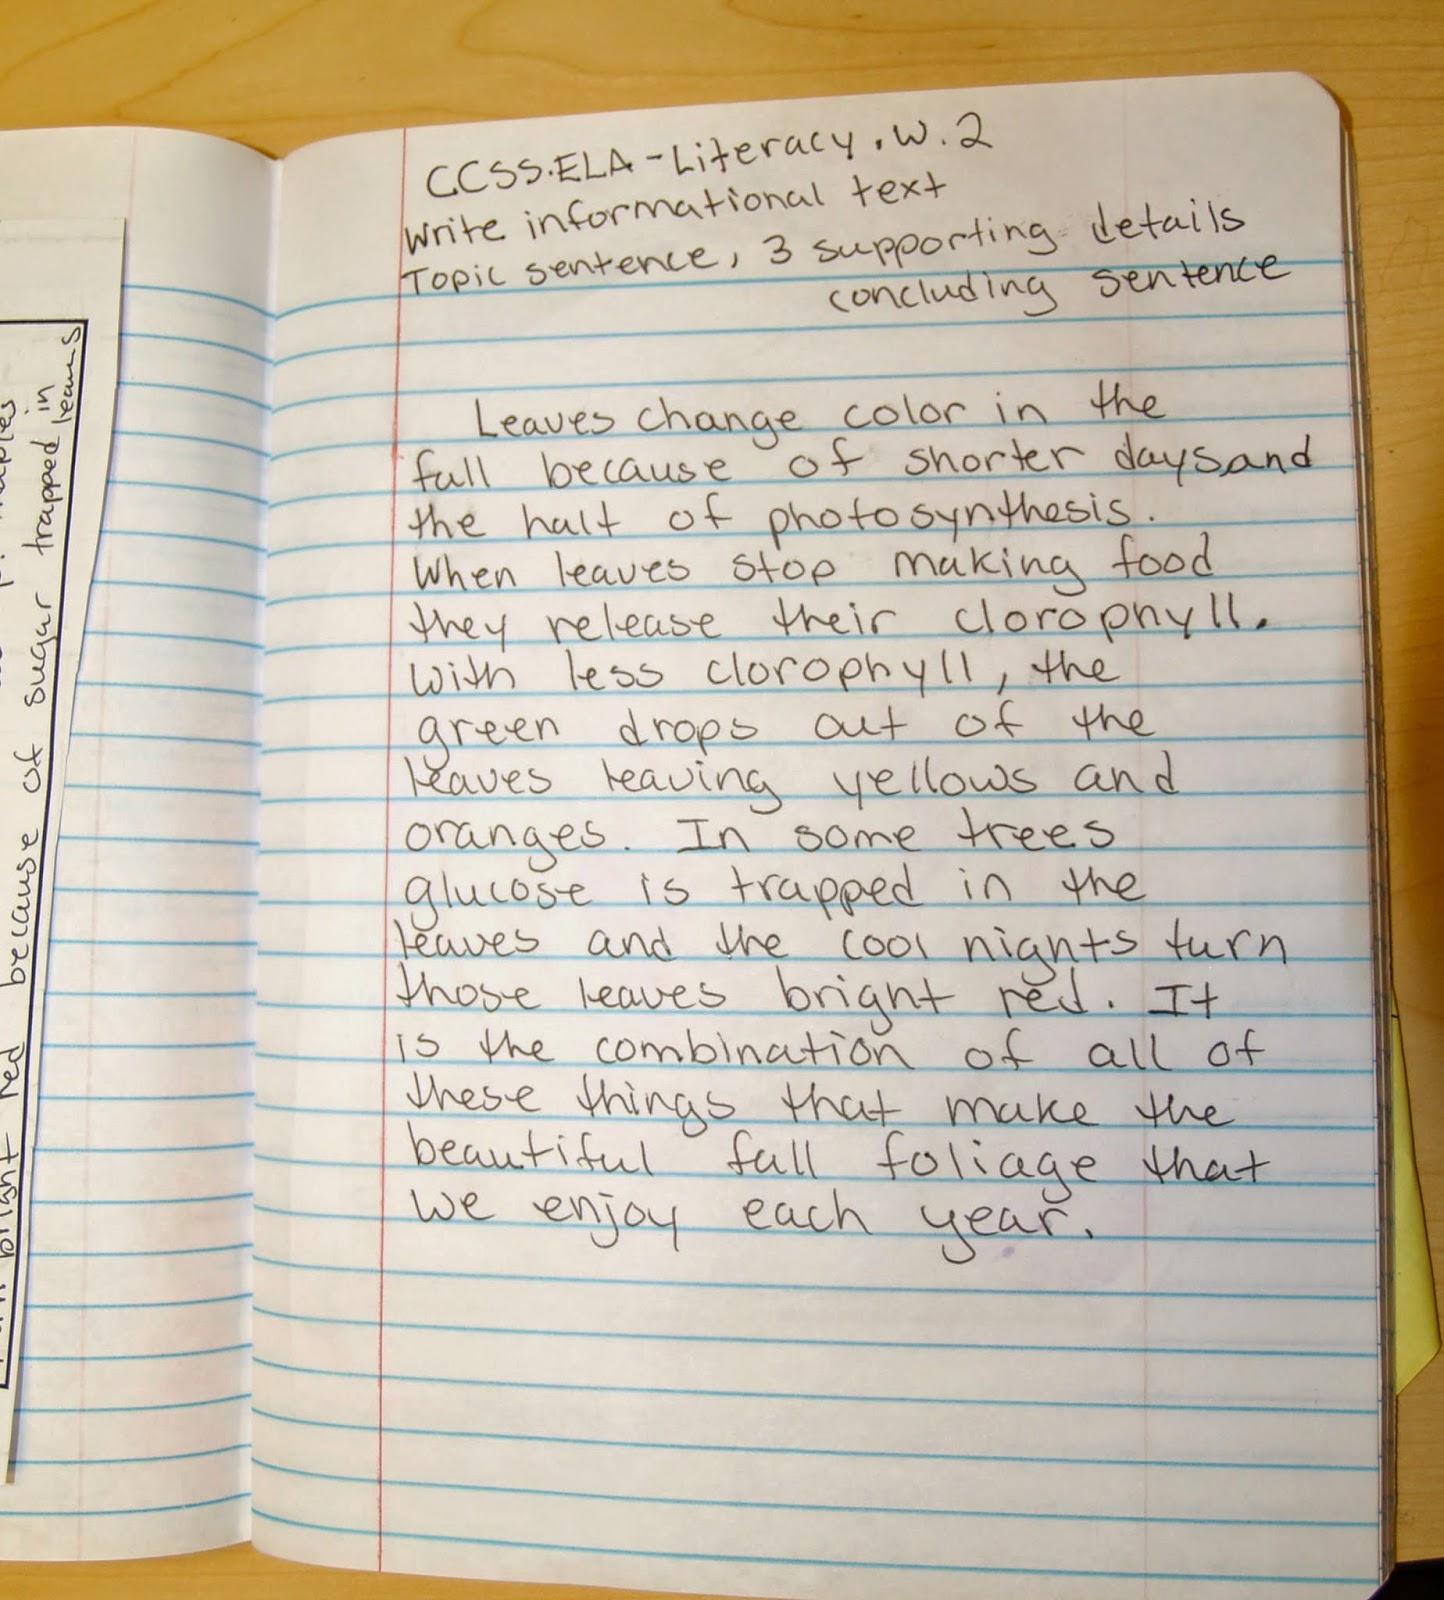 CCSS.ELA-Literacy.W.2
Write informational text
Topic sentence, 3 supporting details
concluding sentence
Leaves change color in the
fall because of shorter days and
the halt of photosynthesis.
When leaves stop making food
they release their clorophyll.
With less clorophyll, the
green drops out of the
leaves leaving yellows and
oranges. In some trees
glucose is trapped in the
leaves and the cool nights turn
those leaves bright red. It
is the combination of all of
these things that make the
beautiful fall foliage that
we enjoy each year.
bright red because of sugar trapped in
leaves